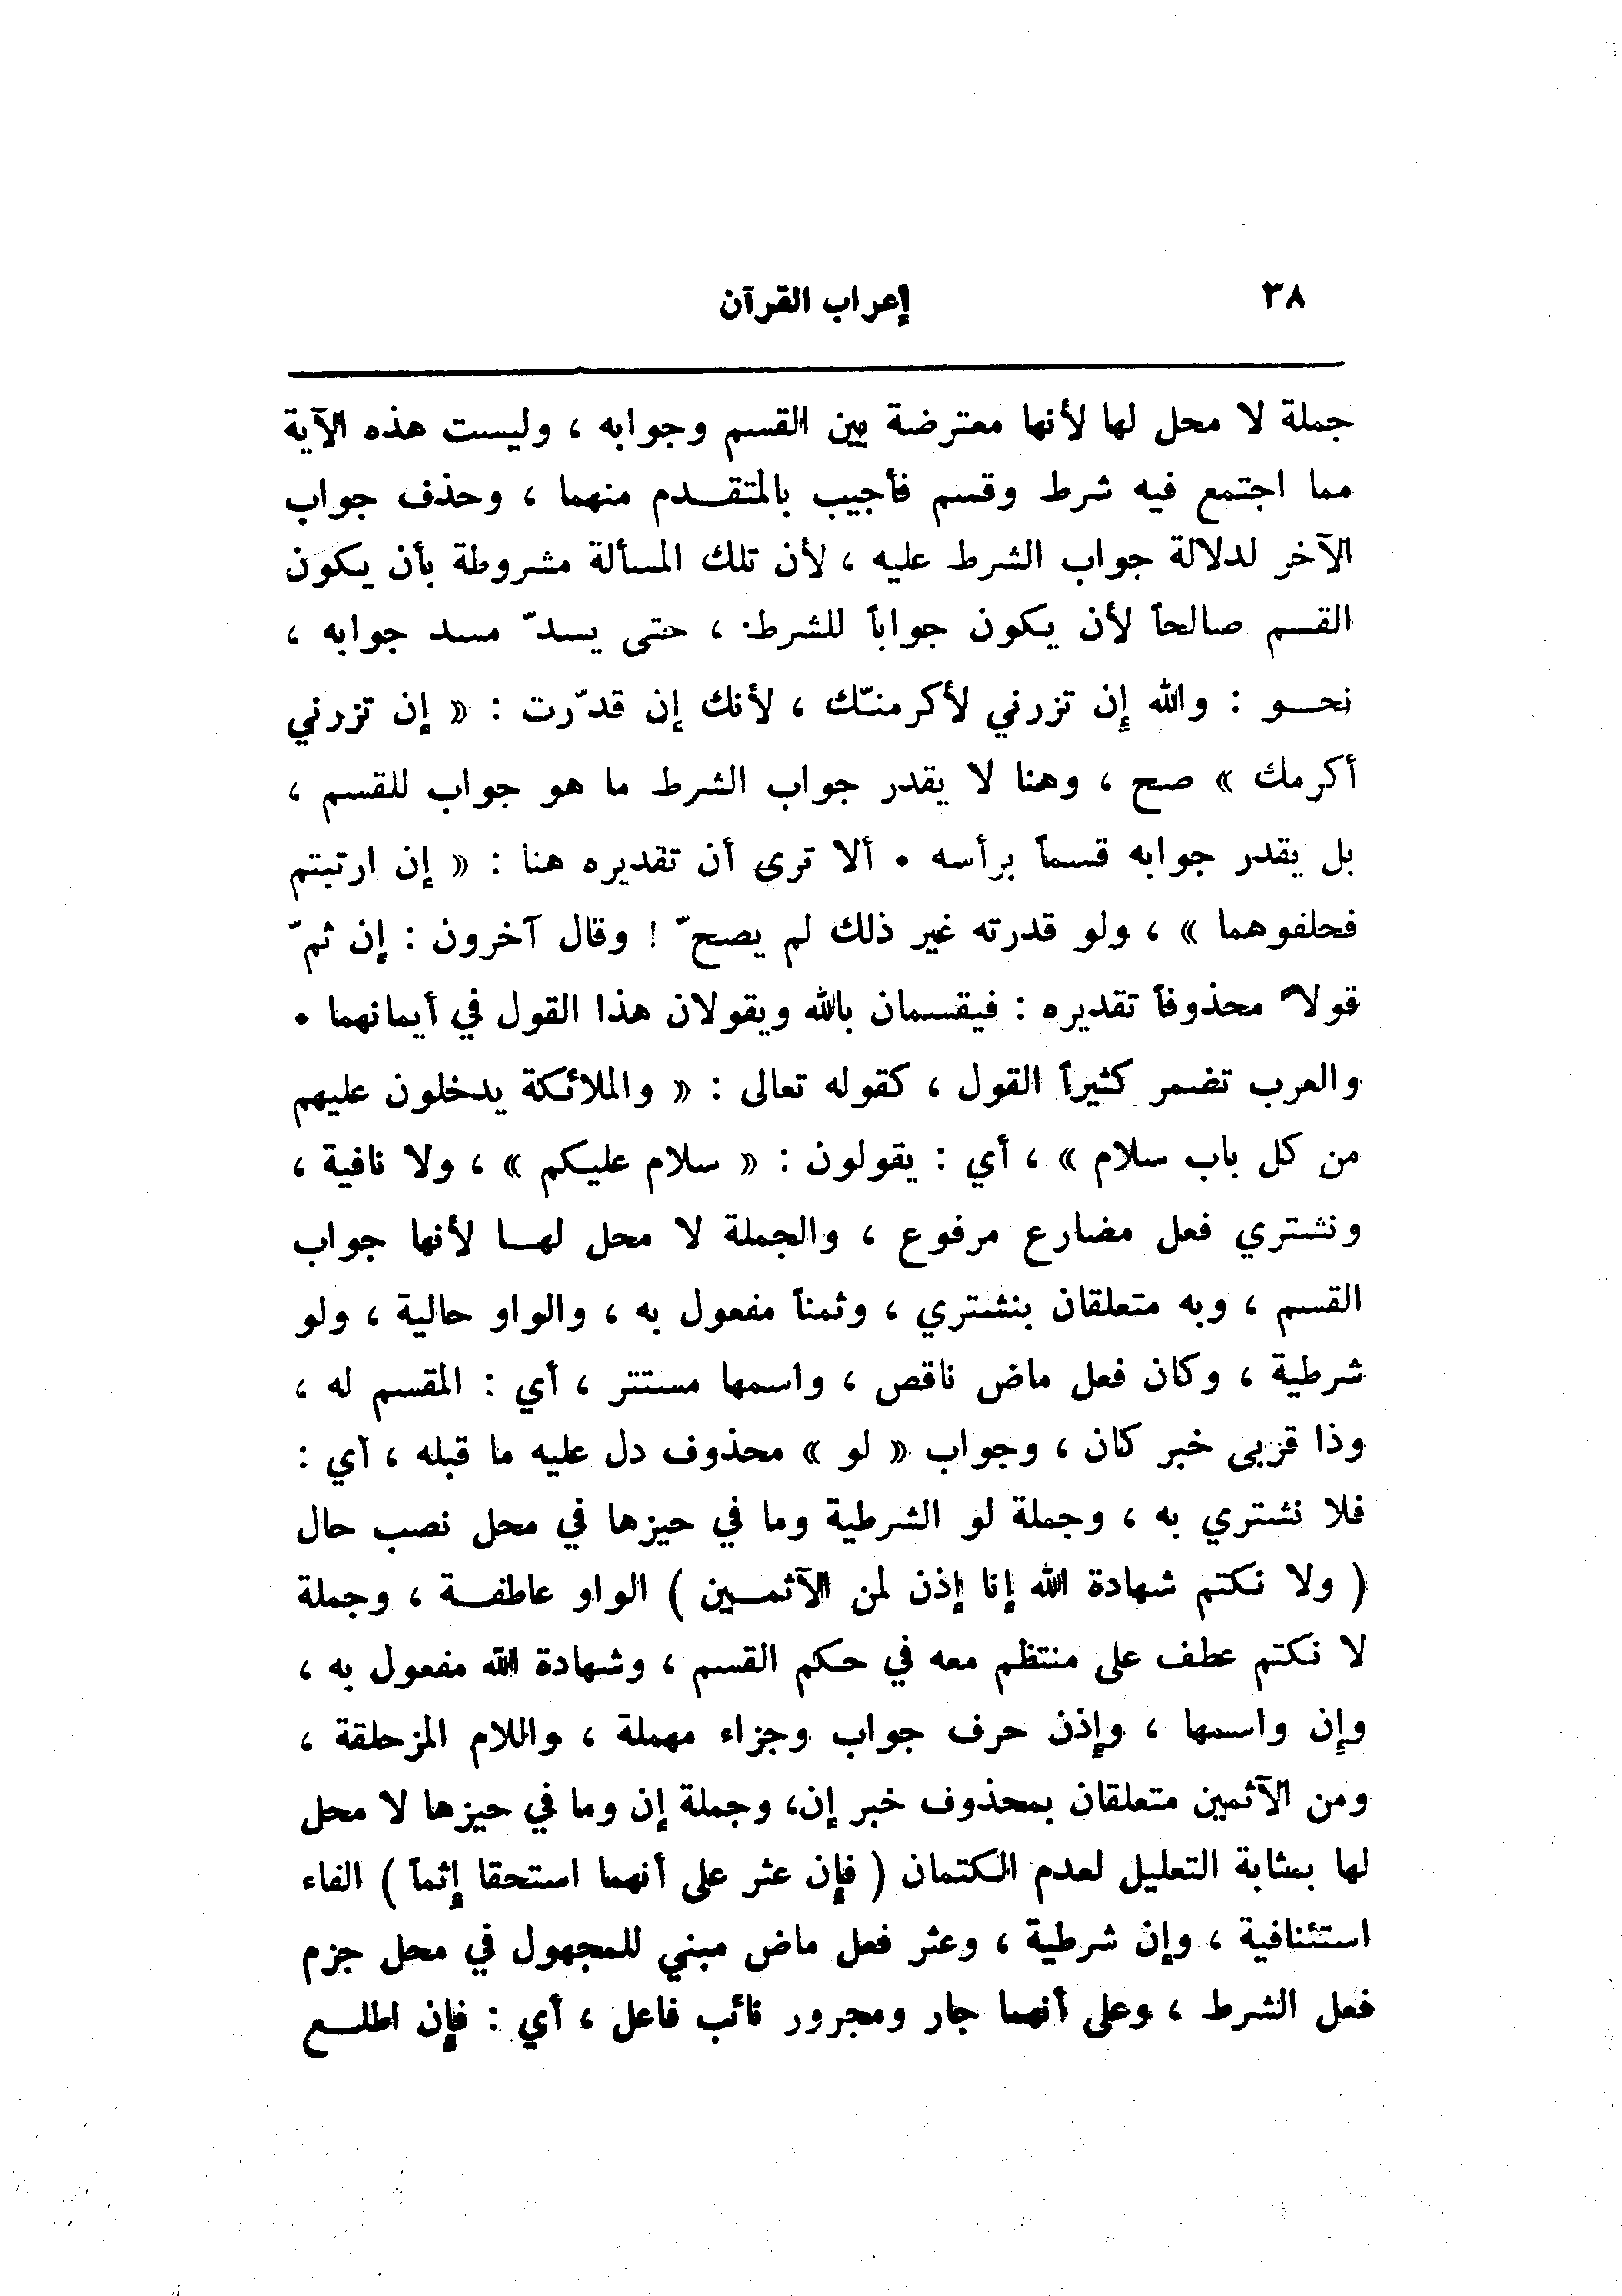 ٣٨ إعراب القرآن
جملة لا محل لها لأنها معترضة بين القسم وجوابه ، وليست هذه الآية
مما اجتمع فيه شرط وقسم فأجيب بالمتقـدم منهما ، وحذف جواب
الآخر لدلالة جواب الشرط عليه ، لأن تلك المسألة مشروطة بأن يكون
القسم صالحاً لأن يكون جواباً للشرط ، حتى يسدّ مسد جوابه ،
نحـو : والله إن تزرني لأكرمنّك ، لأنك إن قدّرت : « إن تزرني
أكرمك » صح ، وهنا لا يقدر جواب الشرط ما هو جواب للقسم ،
بل يقدر جوابه قسماً برأسه . ألا ترى أن تقديره هنا : « إن ارتبتم
فحلفوهما » ، ولو قدرته غير ذلك لم يصحّ ! وقال آخرون : إن ثمّ
قولاً محذوفاً تقديره : فيقسمان بالله ويقولان هذا القول في أيمانهما .
والعرب تضمر كثيراً القول ، كقوله تعالى : « والملائكة يدخلون عليهم
من كل باب سلام » ، أي : يقولون : « سلام عليكم » ، ولا نافية ،
ونشتري فعل مضارع مرفوع ، والجملة لا محل لهـا لأنها جواب
القسم ، وبه متعلقان بنشتري ، وثمناً مفعول به ، والواو حالية ، ولو
شرطية ، وكان فعل ماض ناقص ، واسمها مستتر ، أي : المقسم له ،
وذا قربى خبر كان ، وجواب « لو » محذوف دل عليه ما قبله ، أي :
فلا نشتري به ، وجملة لو الشرطية وما في حيزها في محل نصب حال
( ولا نكتم شهادة الله إنا إذن لمن الآثمـين ) الواو عاطفـة ، وجملة
لا نكتم عطف على منتظم معه في حكم القسم ، وشهادة الله مفعول به ،
وإن واسمها ، وإذن حرف جواب وجزاء مهملة ، واللام المزحلقة ،
ومن الآثمين متعلقان بمحذوف خبر إن، وجملة إن وما في حيزها لا محل
لها بمثابة التعليل لعدم الكتمان ( فإن عثر على أنهما استحقا إثماً ) الفاء
استئنافية ، وإن شرطية ، وعثر فعل ماض مبني للمجهول في محل جزم
فعل الشرط ، وعلى أنهما جار ومجرور نائب فاعل ، أي : فإن اطلـع